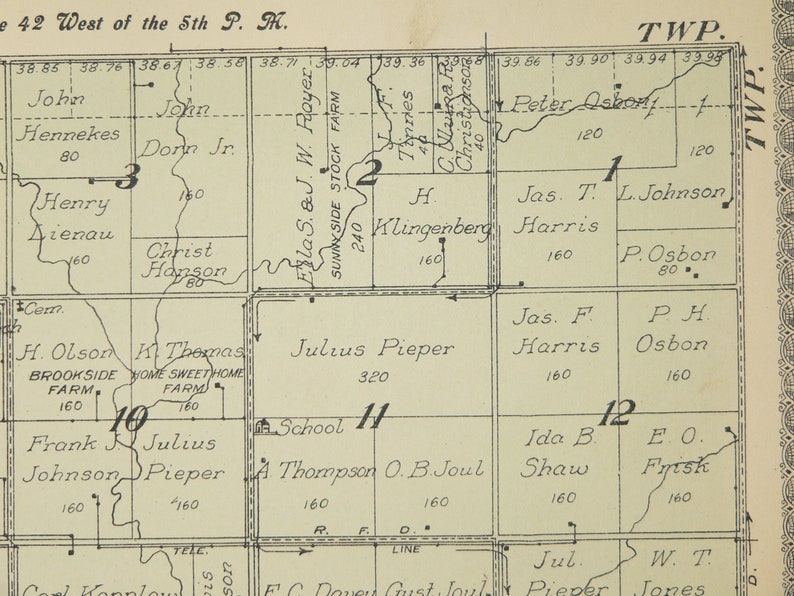 e 42 West of the 5th P. M.
TWP.
TWP.
38.85 38.76 38.67 38.58 38.71 39.04 39.36 39.68 39.86 39.90 39.94 39.98
John
Hennekes
80
John
Dorn Jr.
160
3
Henry
Lienau
160
Christ
Hanson
80
Ella S. & J. W. Royer
SUNNYSIDE STOCK FARM
240
2
Tinnes
40
Christianson
40
H.
Klingenberg
160
Peter Osbon
120
1
120
Jas. T.
Harris
160
L. Johnson
P. Osbon
80
Cem.
H. Olson
BROOKSIDE
FARM
160
K. Thomas
HOME SWEET HOME
FARM
160
10
Frank J.
Johnson
160
Julius
Pieper
160
Julius Pieper
320
11
School
A. Thompson
160
O. B. Joul
160
Jas. F.
Harris
160
P. H.
Osbon
160
12
Ida B.
Shaw
160
E. O.
Frisk
160
R. F. D.
TELE. LINE
E. C. Davey
Gust Joul
Jul.
Pieper
W. T.
Jones